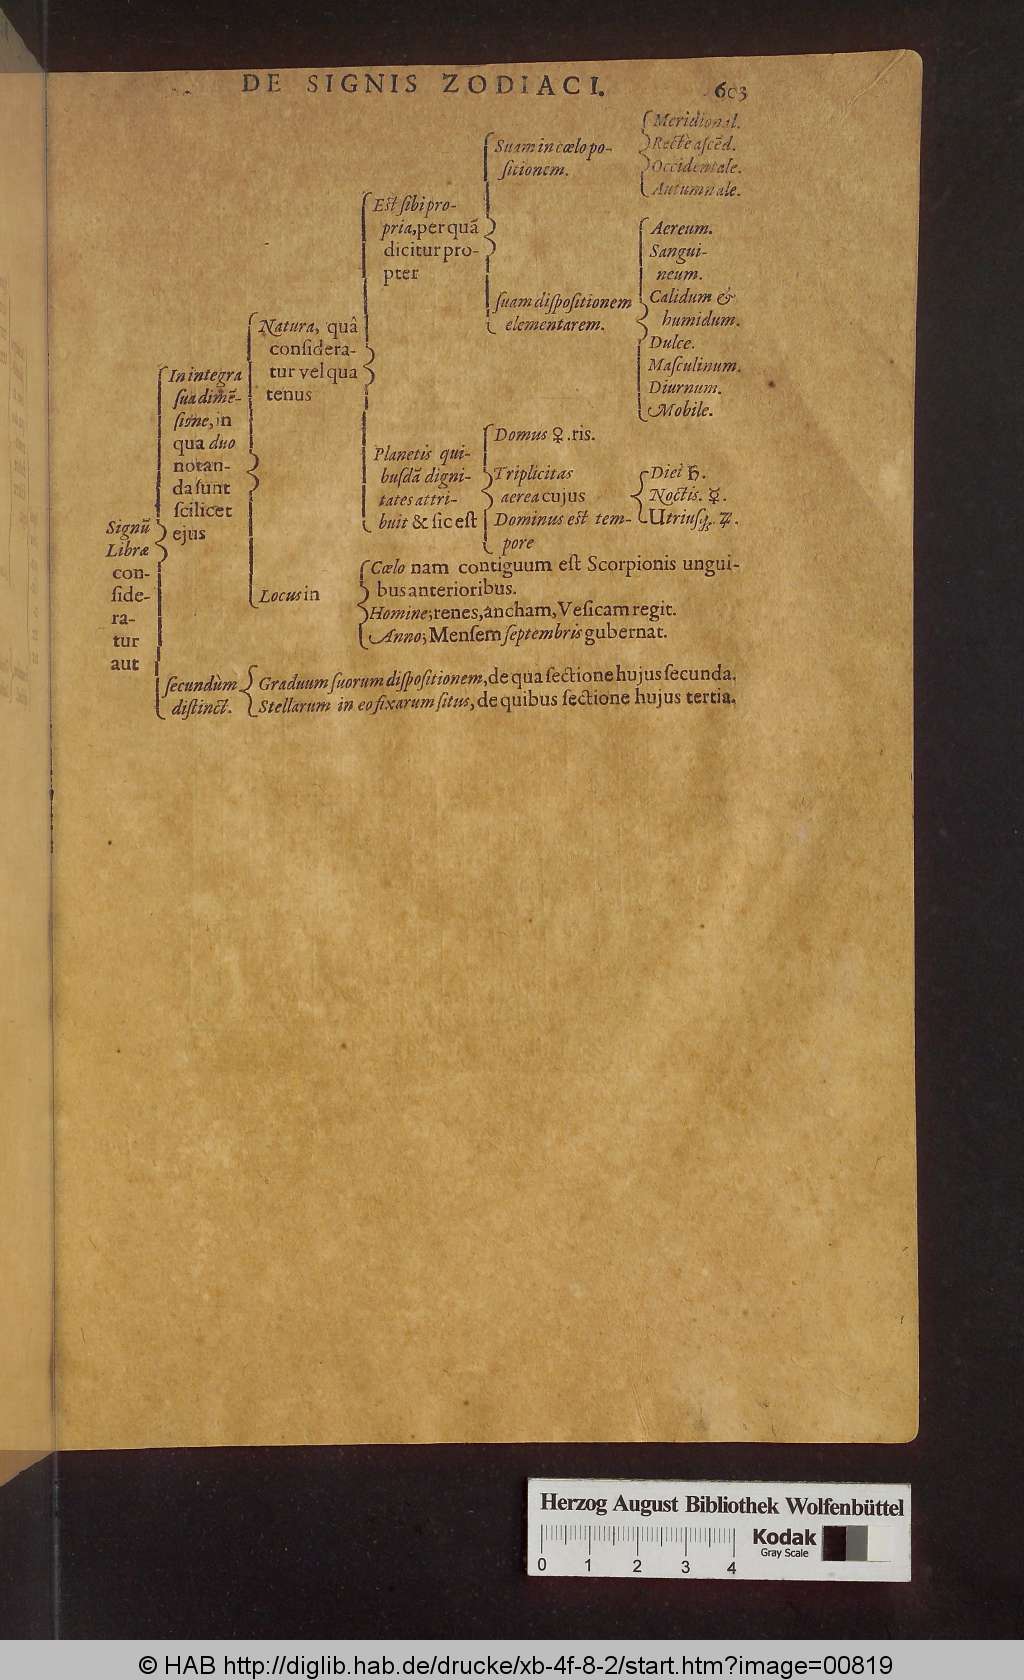 DE SIGNIS ZODIACI.
603
Signũ
Libræ
con-
ſide-
ra-
tur
aut
In integra
ſua dimẽ-
ſione, in
qua duo
notan-
da ſunt
ſcilicet
ejus
Natura, quâ
conſidera-
tur vel qua
tenus
Eſt ſibi pro-
pria, per quã
dicitur pro-
pter
Suam in cœlo po-
ſitionem.
Meridional.
Recte aſcẽd.
Occidentale.
Autumnale.
ſuam diſpoſitionem
elementarem.
Aereum.
Sangui-
neum.
Calidum &
humidum.
Dulce.
Maſculinum.
Diurnum.
Mobile.
Planetis qui-
buſdã digni-
tates attri-
buit & ſic eſt
Domus ♀.ris.
Triplicitas
aerea cujus
Dominus eſt tem-
pore
Diei ♄.
Noctis. ☿.
Utriuſq;. ♃.
Locus in
Cœlo nam contiguum eſt Scorpionis ungui-
bus anterioribus.
Homine; renes, ancham, Veſicam regit.
Anno; Menſem ſeptembris gubernat.
ſecundùm
diſtinct.
Graduum ſuorum diſpoſitionem, de qua ſectione hujus ſecunda.
Stellarum in eo fixarum ſitus, de quibus ſectione hujus tertia.
Herzog August Bibliothek Wolfenbüttel
Kodak
Gray Scale
0 1 2 3 4
© HAB http://diglib.hab.de/drucke/xb-4f-8-2/start.htm?image=00819